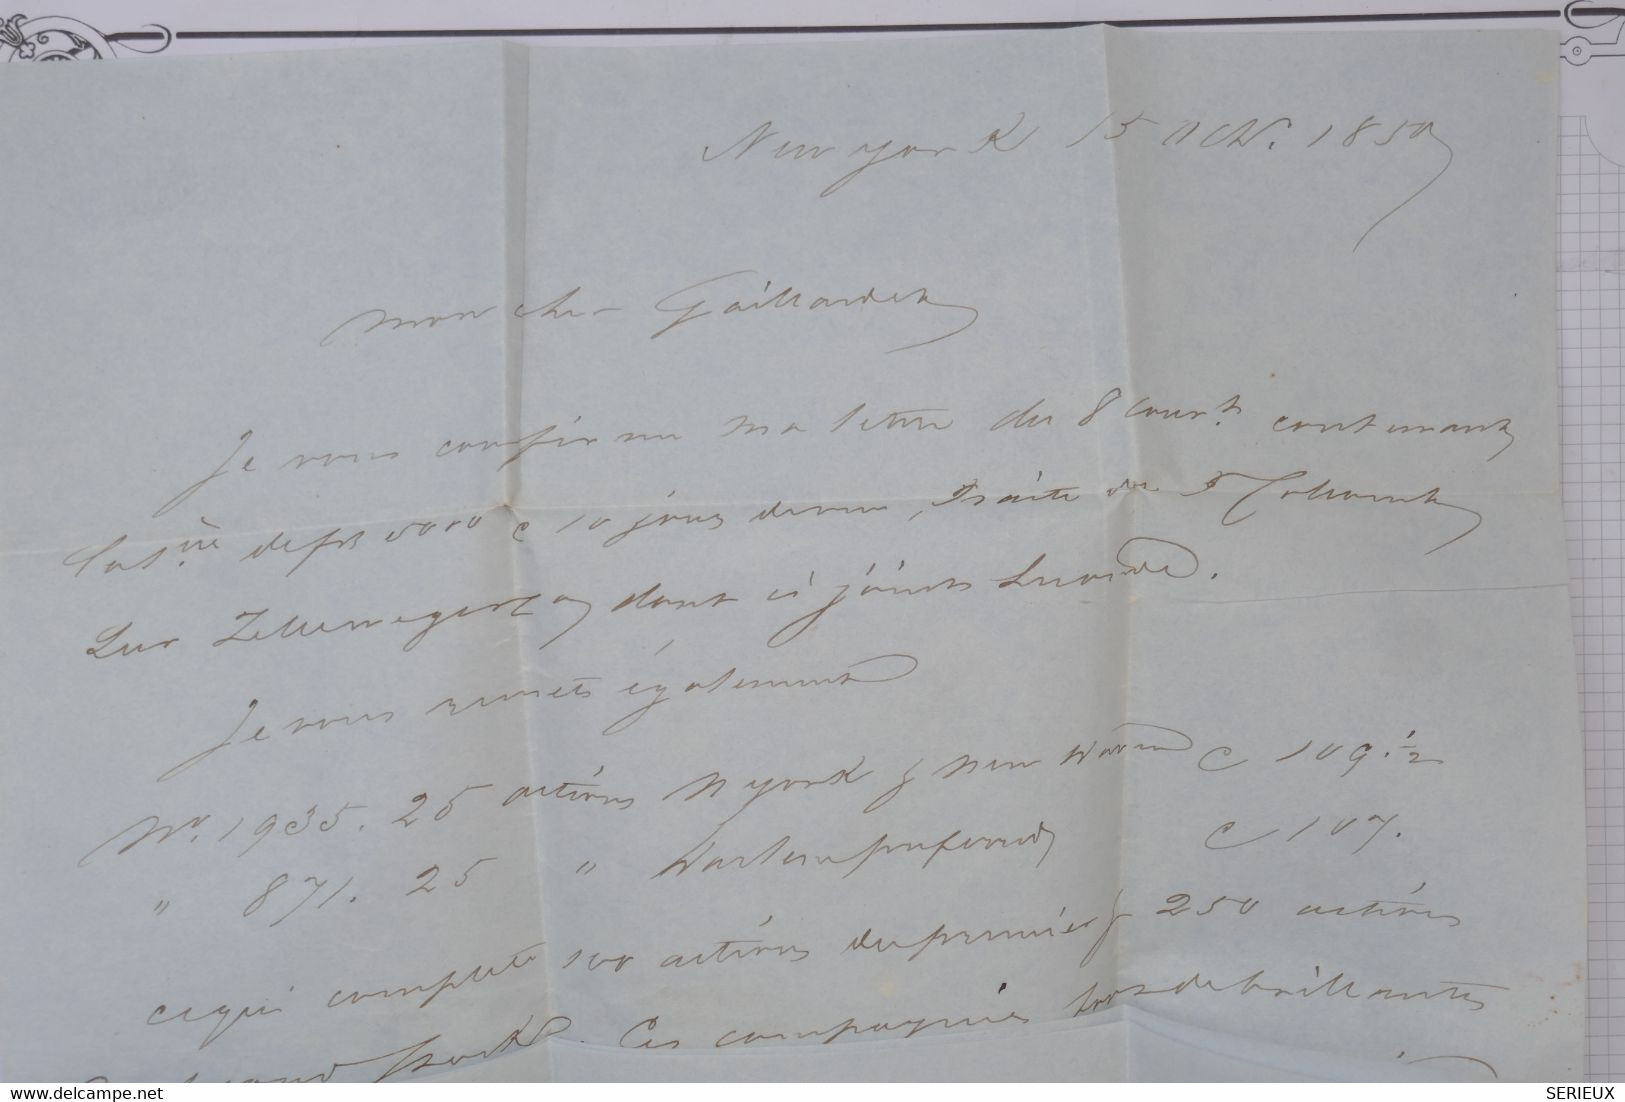 New york 15 Oct. 1850
Mon cher Gaillardet
Je vous confirme ma lettre du 8 cour.t contenant
de frs 5000 c 10 jours de vue, traite de
Sur dont ci joint Seconde.
Je vous remets également
No. 1935. 25 actions N york & New Haven c 109.½
" 871. 25 " preferred c 107.
ce qui complète 100 actions du premier & 250 actions
stock. Ces compagnies sont de brillantes
SERIEUX
Delcampe.net